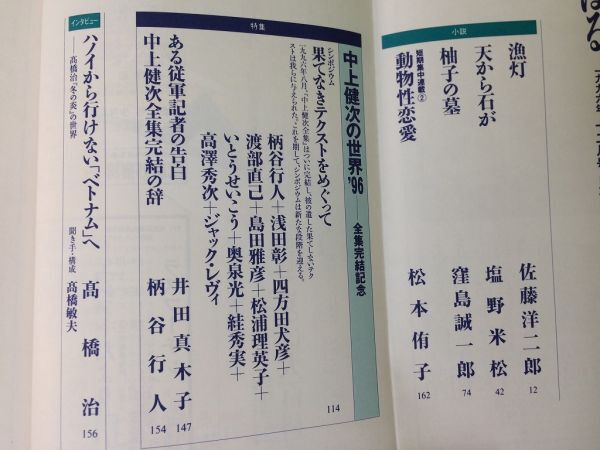 小説
漁灯 佐藤洋二郎 12
天から石が 塩野米松 42
柚子の墓 窪島誠一郎 74
短期集中連載②
動物性恋愛 松本侑子 162
特集
中上健次の世界'96 全集完結記念
シンポジウム
果てなきテクストをめぐって
一九九六年八月、『中上健次全集』はついに完結し、彼の遺した果てしないテク
ストは我らに与えられた。これを期して、シンポジウムは新たな段階を迎える。
柄谷行人+浅田彰+四方田犬彦+
渡部直己+島田雅彦+松浦理英子+
いとうせいこう+奥泉光+絓秀実+
高澤秀次+ジャック・レヴィ
114
ある従軍記者の告白 井田真木子 147
中上健次全集完結の辞 柄谷行人 154
インタビュー
ハノイから行けない「ベトナム」へ 髙橋治 156
──髙橋治『冬の炎』の世界 聞き手・構成 高橋敏夫